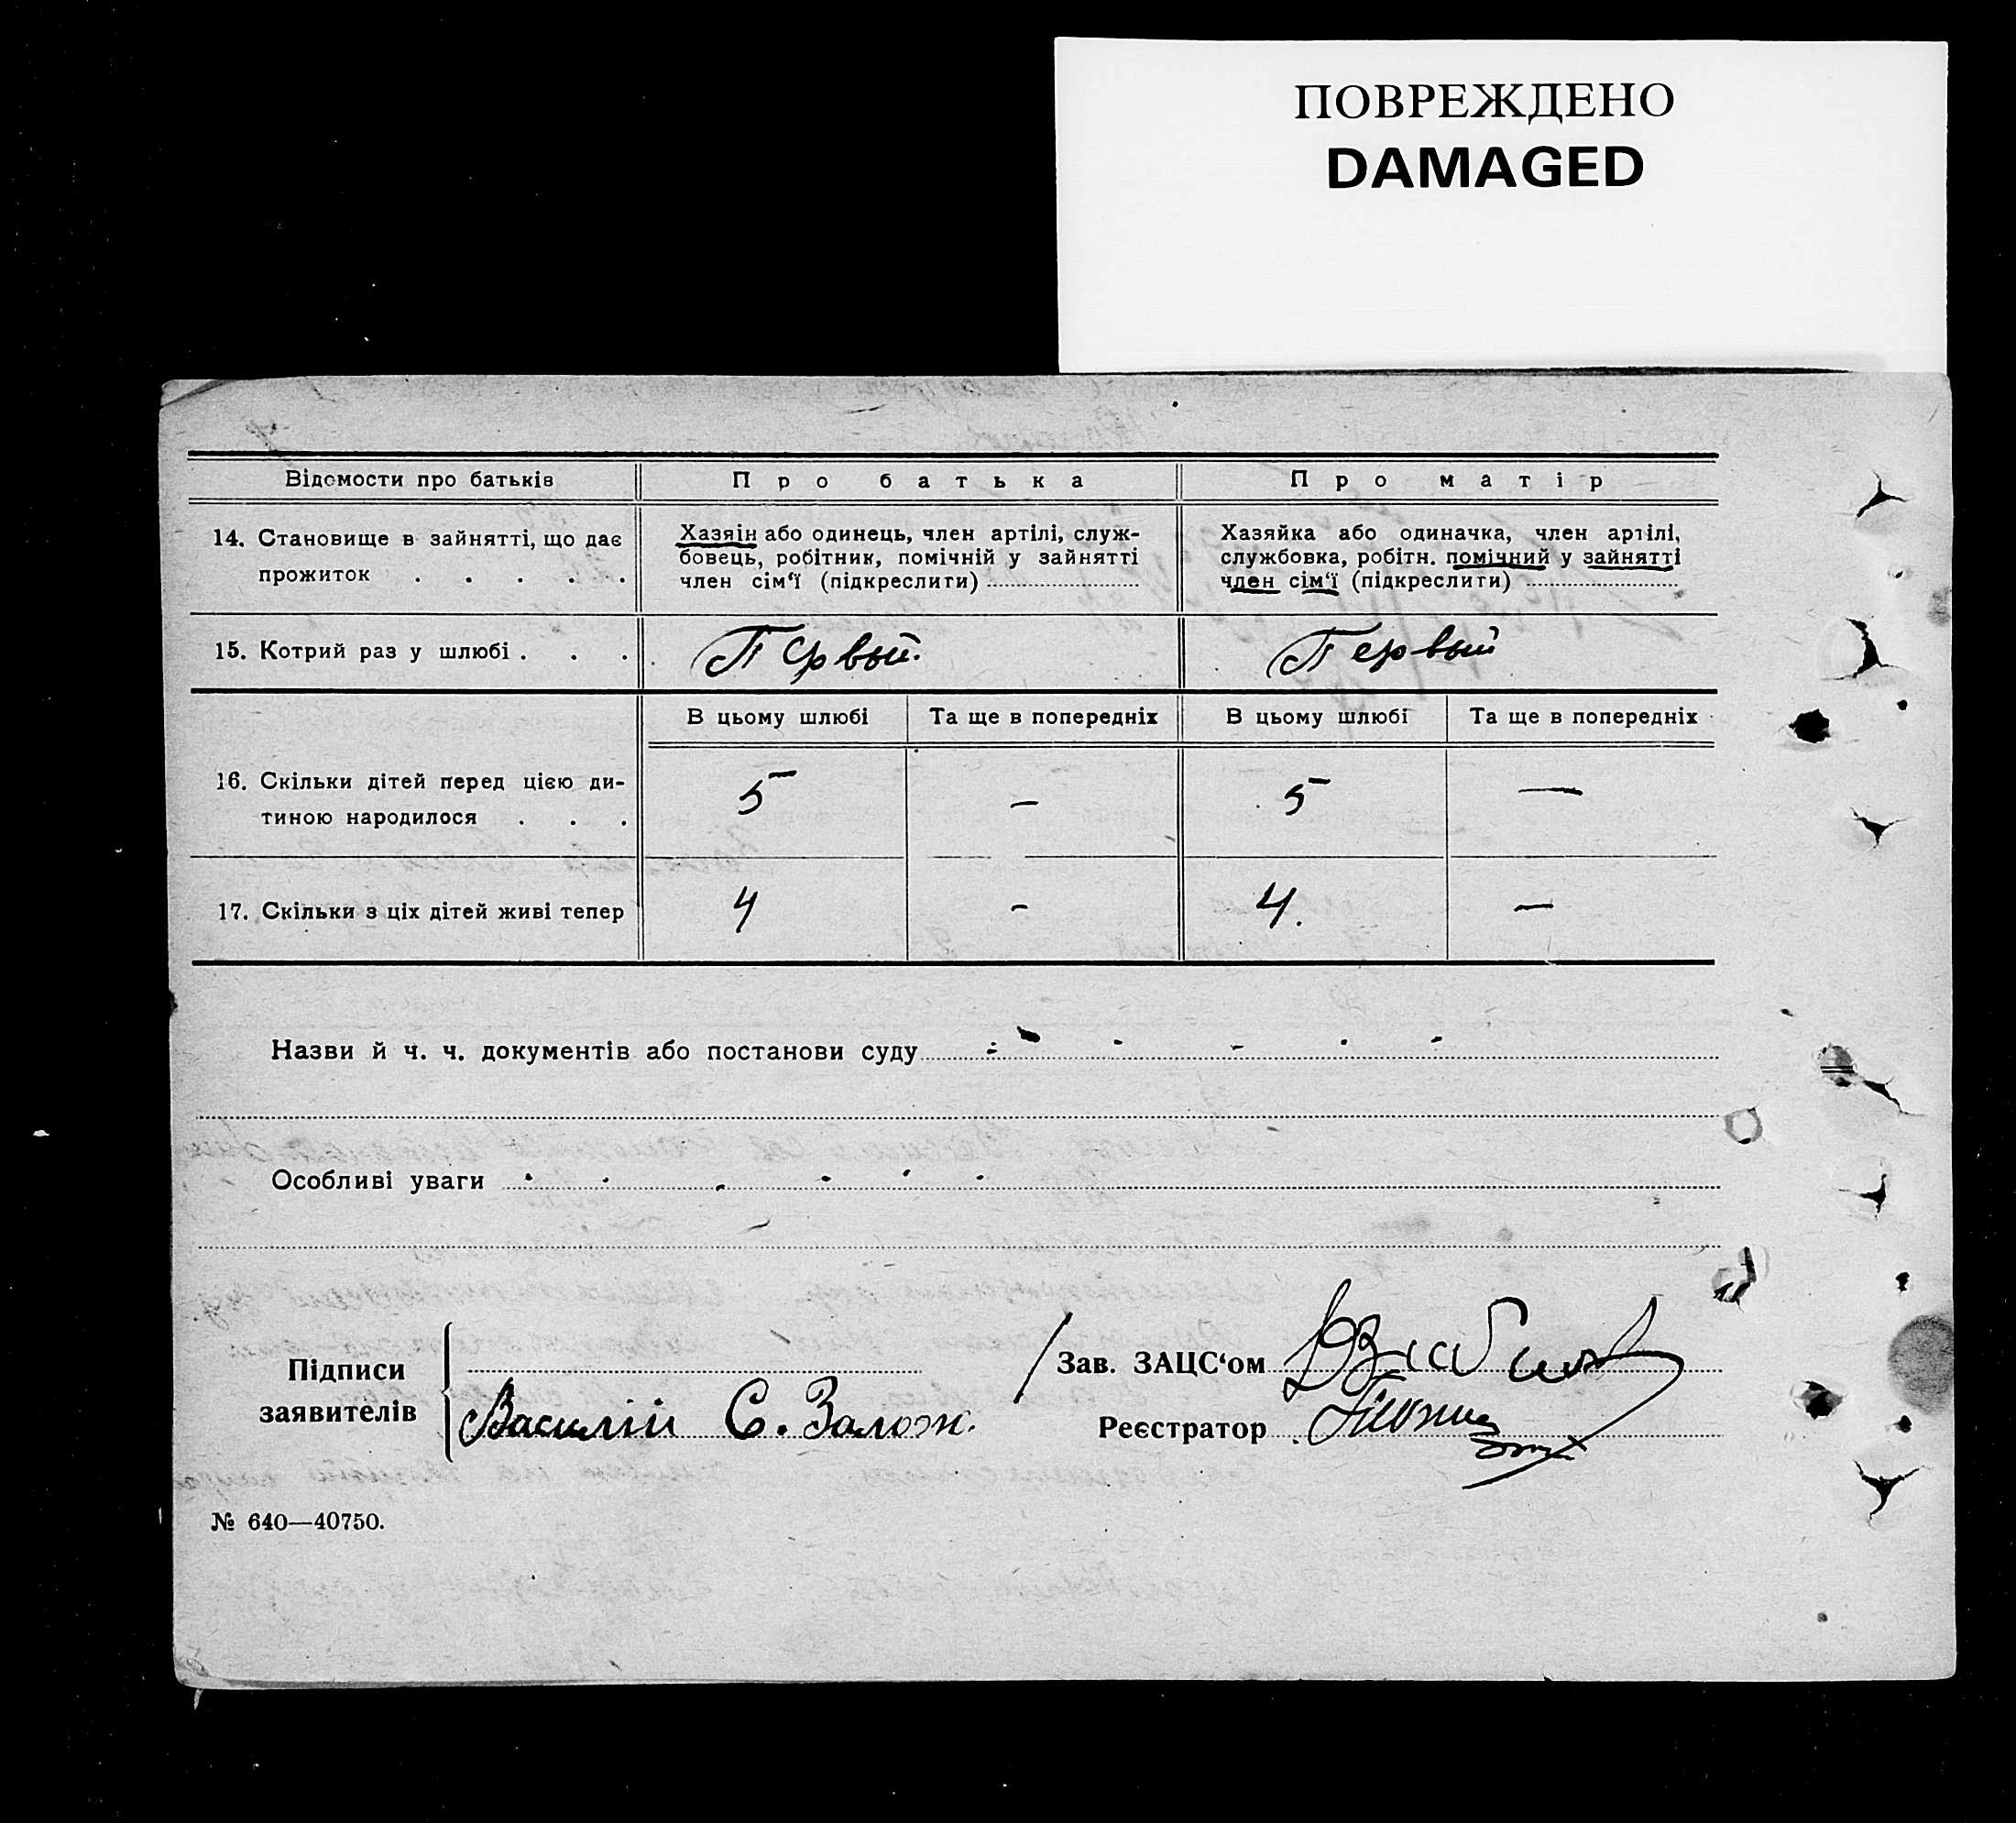 ПОВРЕЖДЕНО
DAMAGED
Відомости про батьків
Про батька
Про матір
14. Становище в зайнятті, що дає
прожиток . . . . .
Хазяін або одинець, член артілі, служ-
бовець, робітник, помічній у зайнятті
член сім'ї (підкреслити)
Хазяйка або одиначка, член артілі,
службовка, робітн. помічний у зайнятті
член сім'ї (підкреслити)
15. Котрий раз у шлюбі . . .
Первый.
Первый
В цьому шлюбі
Та ще в попередніх
В цьому шлюбі
Та ще в попередніх
16. Скільки дітей перед цією ди-
тиною народилося . . .
5
—
5
—
17. Скільки з ціх дітей живі тепер
4
—
4.
—
Назви й ч. ч. документів або постанови суду
Особливі уваги
Підписи
заявителів
Василій С. Залож.
Зав. ЗАЦС'ом
Реєстратор
№ 640—40750.